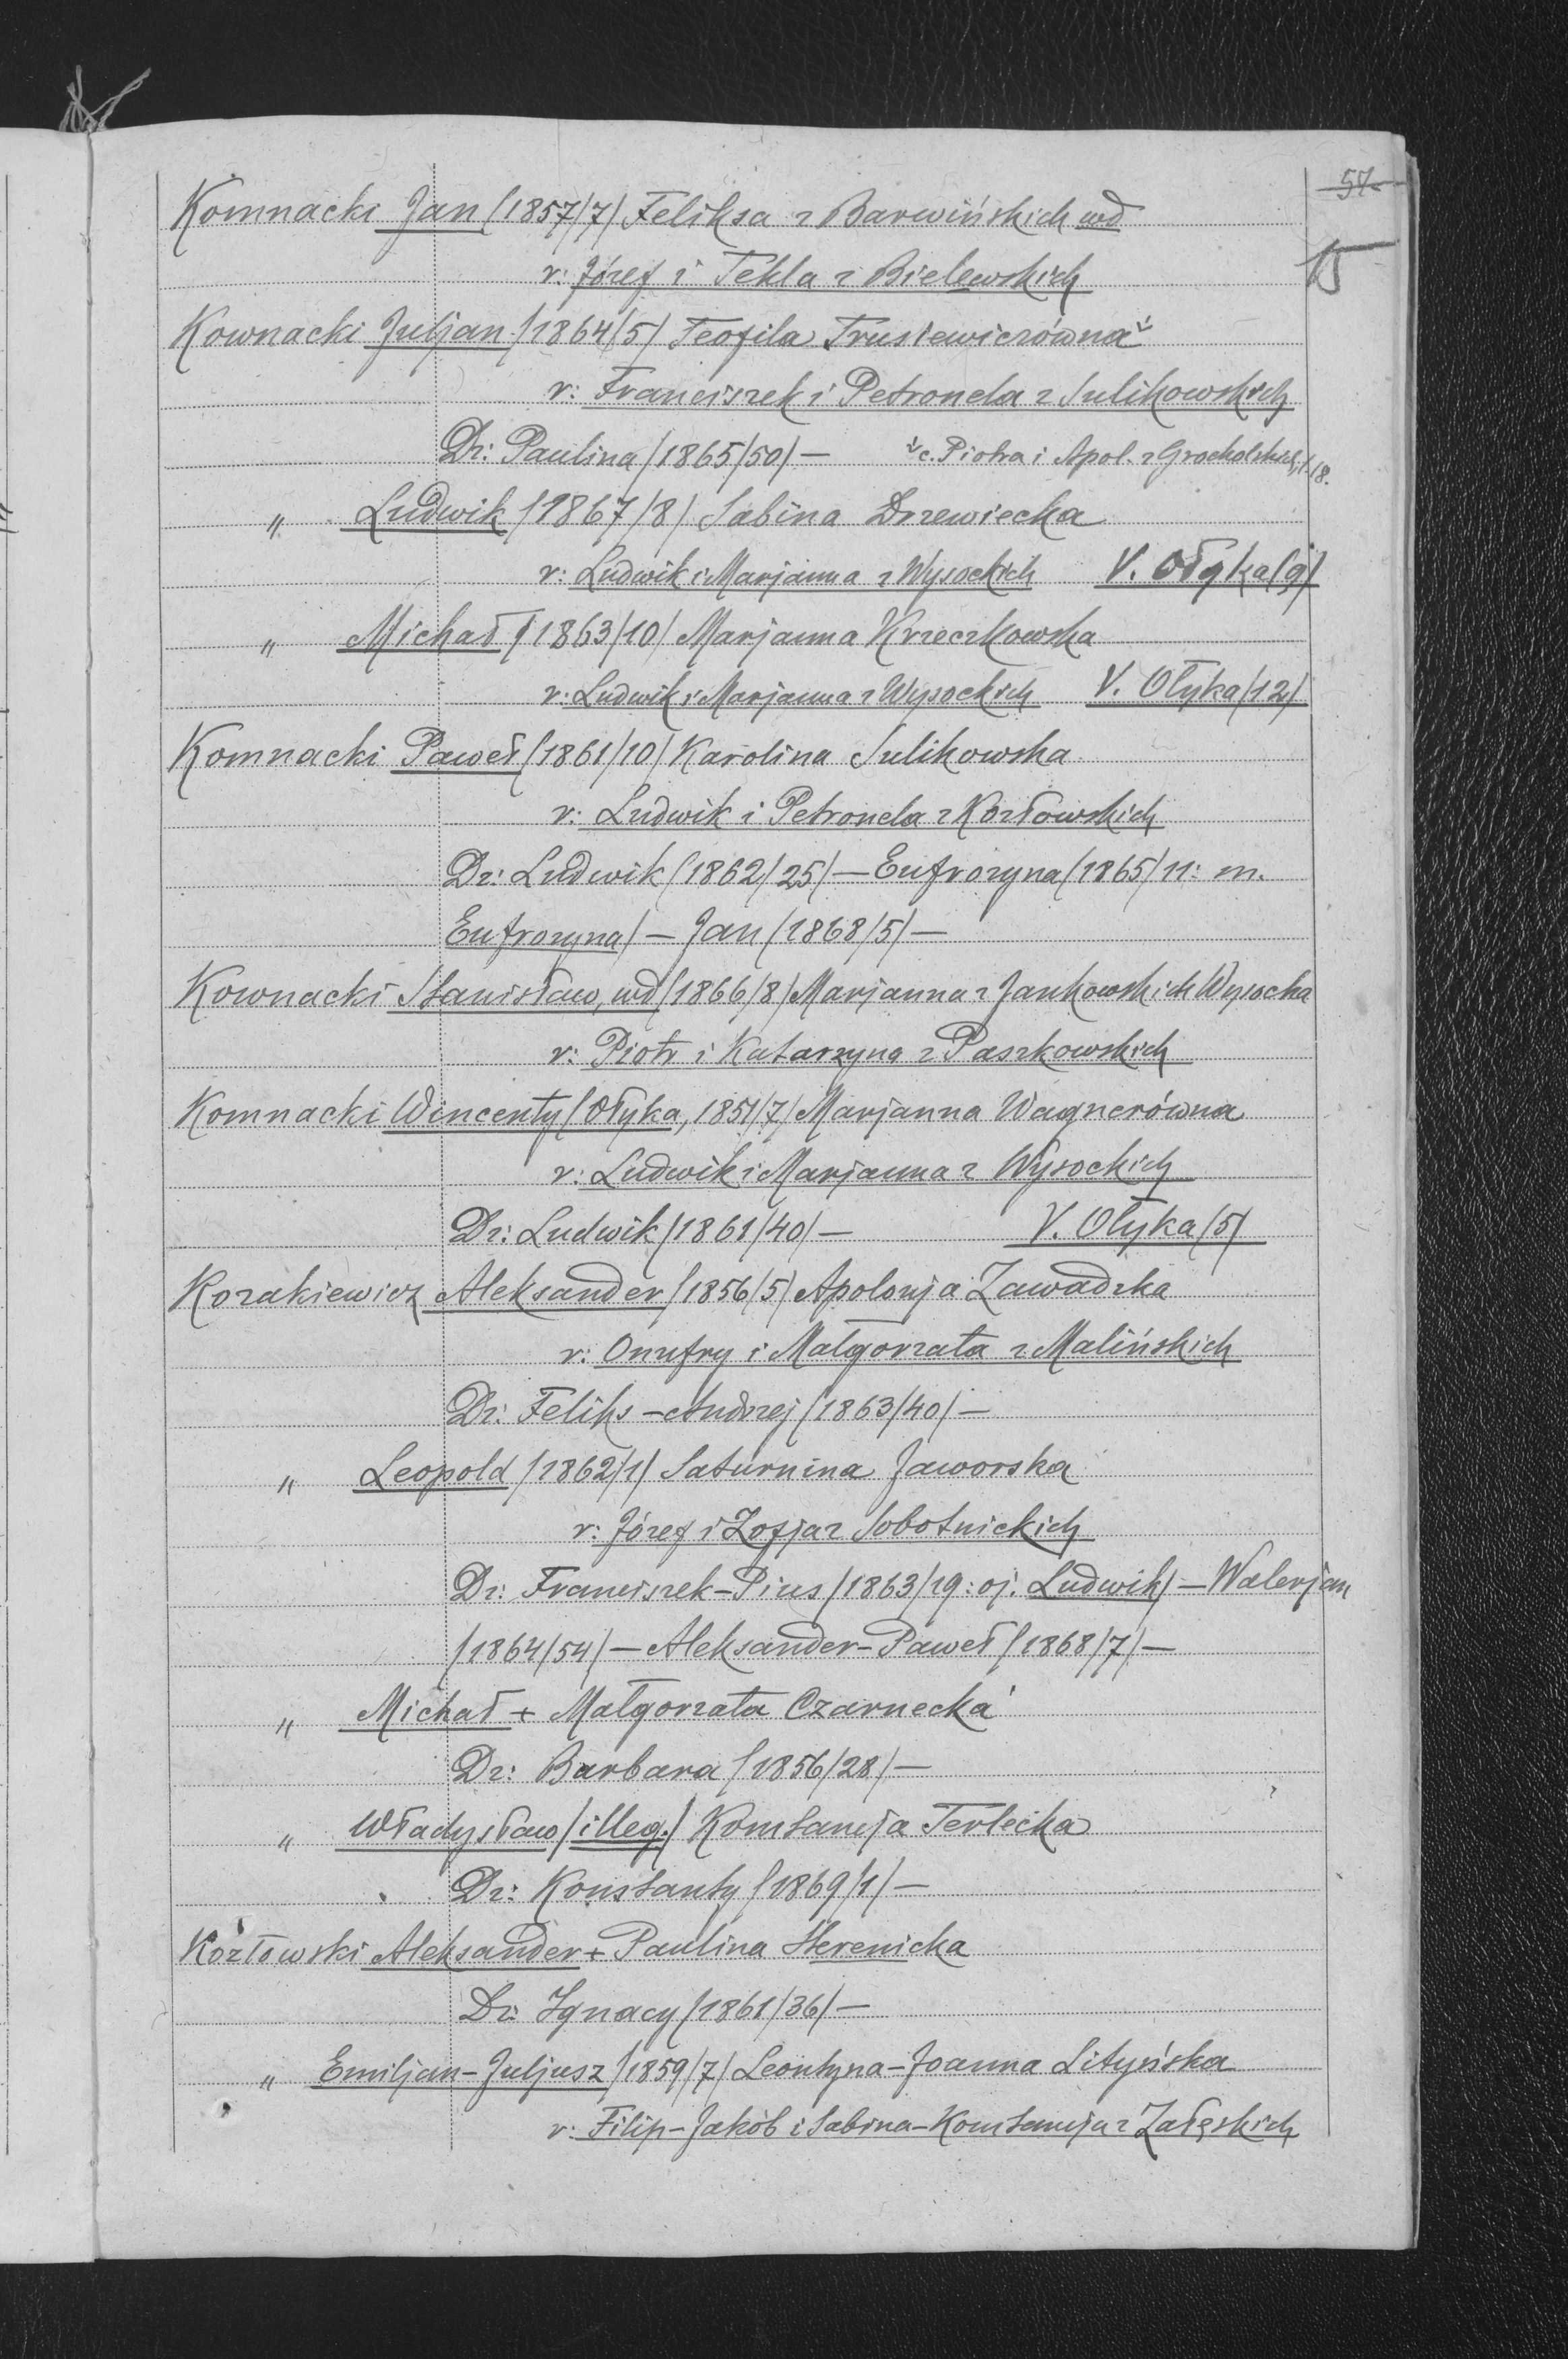 57.
15
Komnacki Jan /1857/7/ Feliksa z Barwińskich wd
r: Józef i Tekla z Bielewskich
Kownacki Juljan /1864/5/ Teofila Trusiewiczówna
r: Franciszek i Petronela z Sulikowskich
Dz: Paulina /1865/50/ — c. Piotra i Apol. z Grocholskich, l. 18.
" Ludwik /1867/8/ Sabina Drzewiecka
r: Ludwik i Marjanna z Wysockich V. Ołyka /9/
" Michał /1863/10/ Marjanna Krzeczkowska
r: Ludwik i Marjanna z Wysockich V. Ołyka /12/
Komnacki Paweł /1861/10/ Karolina Sulikowska
r: Ludwik i Petronela z Kozłowskich
Dz: Ludwik /1862/25/ — Eufrozyna /1865/11: m.
Eufrozyna/ — Jan /1868/5/ —
Kownacki Stanisław, wd /1866/8/ Marjanna z Jankowskich Wysocka
r: Piotr i Katarzyna z Paszkowskich
Komnacki Wincenty /Ołyka, 1851/7/ Marjanna Wagnerówna
r: Ludwik i Marjanna z Wysockich
Dz: Ludwik /1861/40/ — V. Ołyka /5/
Kozakiewicz Aleksander /1856/5/ Apolonja Zawadzka
r: Onufry i Małgorzata z Malińskich
Dz: Feliks-Andrzej /1863/40/ —
" Leopold /1862/1/ Saturnina Jaworska
r: Józef i Zofja z Sobotnickich
Dz: Franciszek-Pius /1863/19: oj. Ludwik/ — Walerjan
/1864/54/ — Aleksander-Paweł /1868/7/ —
" Michał + Małgorzata Czarnecka
Dz: Barbara /1856/28/ —
" Władysław /illeg./ Konstancja Terlecka
Dz: Konstanty /1869/1/ —
Kozłowski Aleksander + Paulina Herenicka
Dz: Ignacy /1861/36/ —
" Emiljan-Juljusz /1859/7/ Leontyna-Joanna Lityńska
r: Filip-Jakób i Sabina-Konstancja z Załęskich